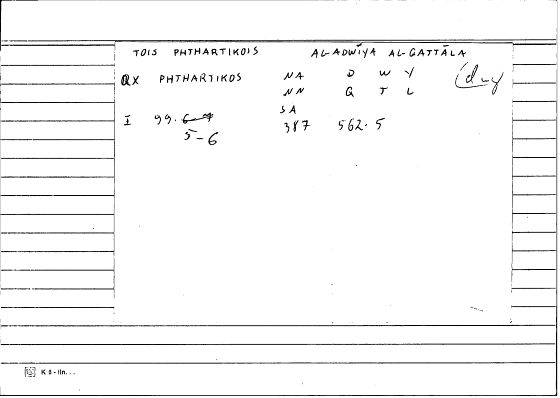 TOIS PHTHARTIKOIS AL-ADWĪYA AL-GATTĀLA
QX PHTHARTIKOS NA D W Y (d-y
NN Q T L
SA
I 99. 6-7 387 562.5
5-6
K 8 - lin. . .